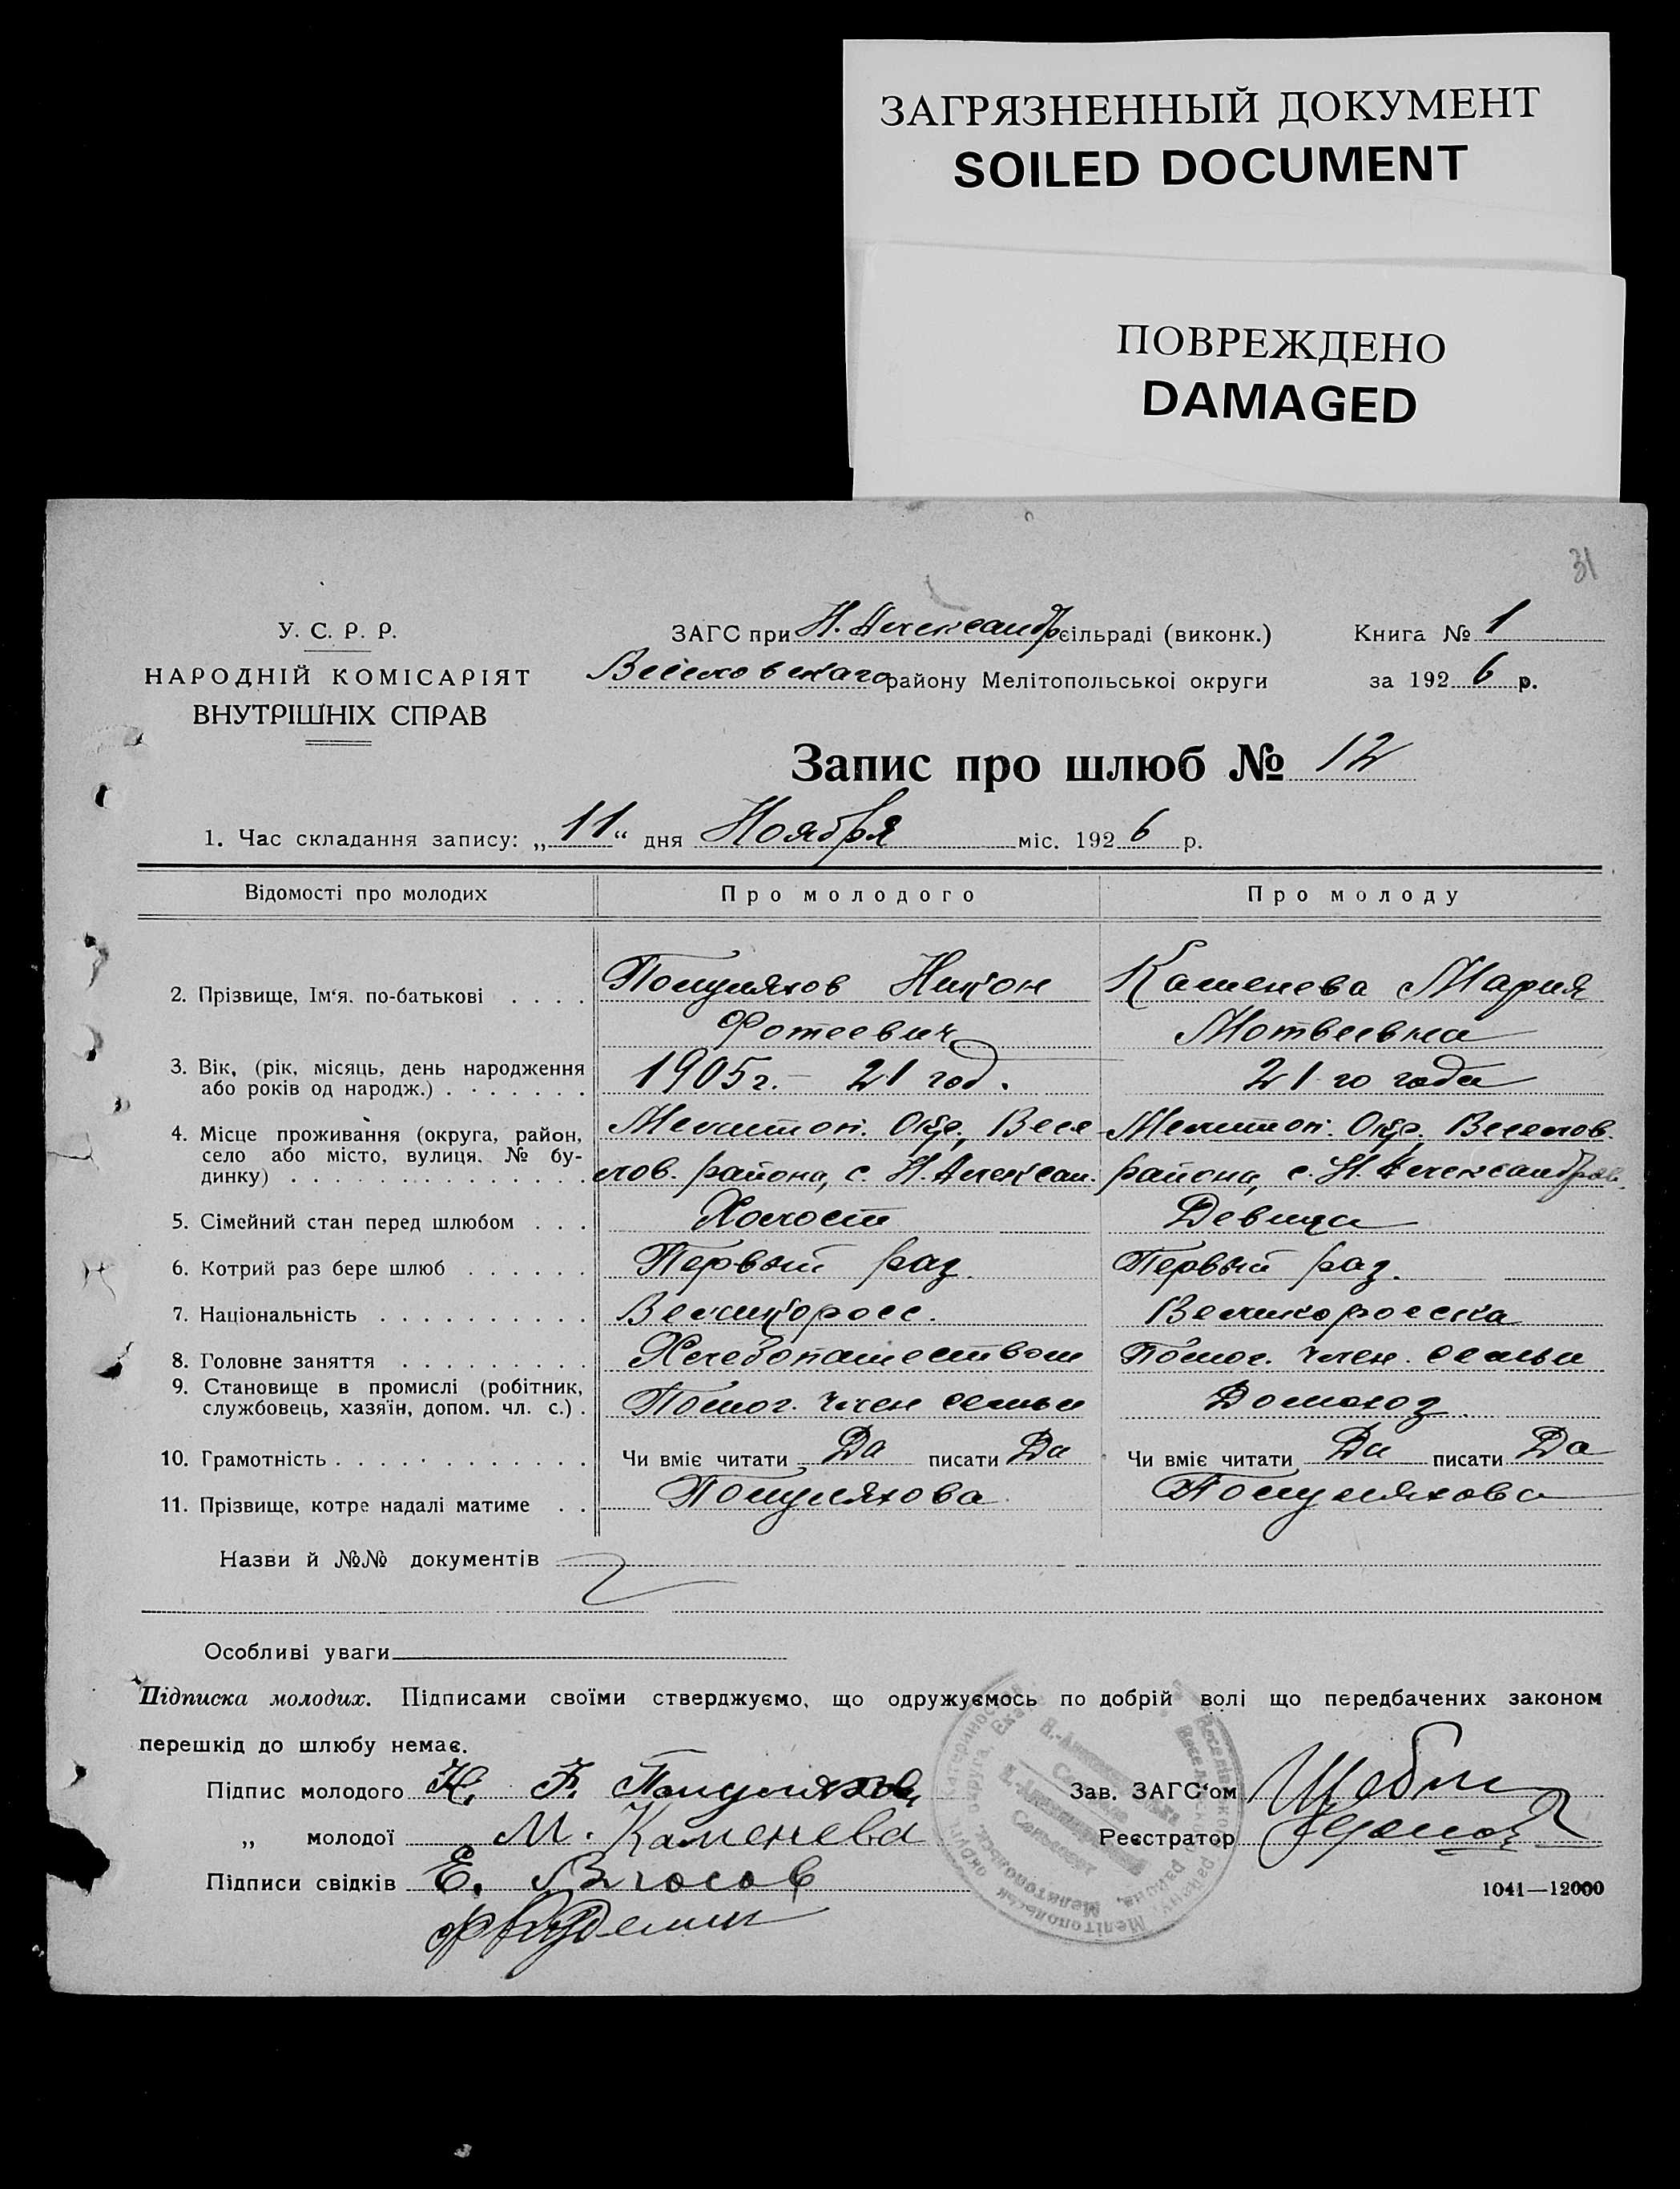 ЗАГРЯЗНЕННЫЙ ДОКУМЕНТ
SOILED DOCUMENT
ПОВРЕЖДЕНО
DAMAGED
31
У. С. Р. Р.
НАРОДНІЙ КОМІСАРІЯТ
ВНУТРІШНІХ СПРАВ
ЗАГС при Н. Александр сільраді (виконк.)
району Мелітопольської округи
Книга № 1
за 1926 р.
Запис про шлюб № 12
1. Час складання запису: „11“ дня Ноября міс. 1926 р.
Відомості про молодих Про молодого Про молоду
2. Прізвище, Ім‘я, по-батькові . . . .
Никон
Фотеевич
Каменева Мария
Мотвеевна
3. Вік, (рік, місяць, день народження
або років од народж.) . . . . . . .
1905 г. — 21 год.
21-го года
4. Місце проживання (округа, район,
село або місто, вулиця, № бу-
динку) . . . . . . . . . . . . . . .
Мелитоп. Окр., Весе-
лов. района, с. Н. Алексан.
Мелитоп. Окр. Веселов.
района, с. Н. Александров.
5. Сімейний стан перед шлюбом . . . Холост Девица
6. Котрий раз бере шлюб . . . . . . Первый раз. Первый раз.
7. Національність . . . . . . . . . . Великоросс. Великоросска
8. Головне заняття . . . . . . . . . Хлебопашеством Помог. член. семьи
9. Становище в промислі (робітник,
службовець, хазяїн, допом. чл. с.) .
Помог. член семьи Домохоз.
10. Грамотність . . . . . . . . . . . . Чи вміє читати Да писати Да Чи вміє читати Да писати Да
11. Прізвище, котре надалі матиме . .
Назви й №№ документів
Особливі уваги
Підписка молодих. Підписами своїми стверджуємо, що одружуємось по добрій волі що передбачених законом
перешкід до шлюбу немає.
Підпис молодого Н. Ф.
„ молодої М. Каменева
Підписи свідків Е. Власов
Зав. ЗАГС‘ом
Реєстратор
1041—12000